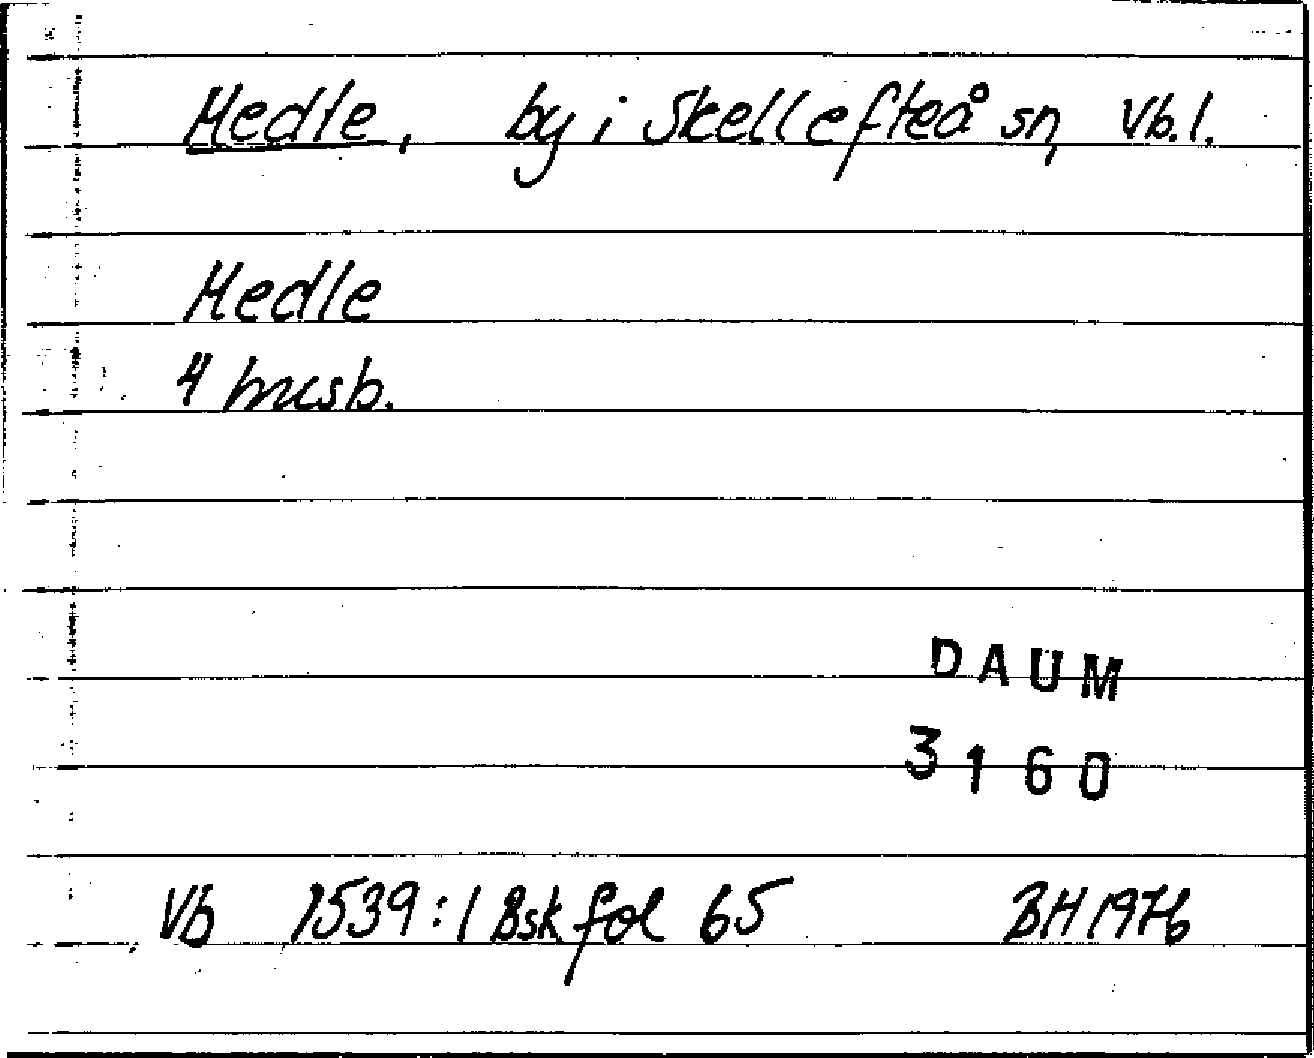 Medle, by i Skellefteå sn, Vb.l.
Medle
4
DAUM
3160
Vb 1539:1 Bsk fol 65 BH 1976